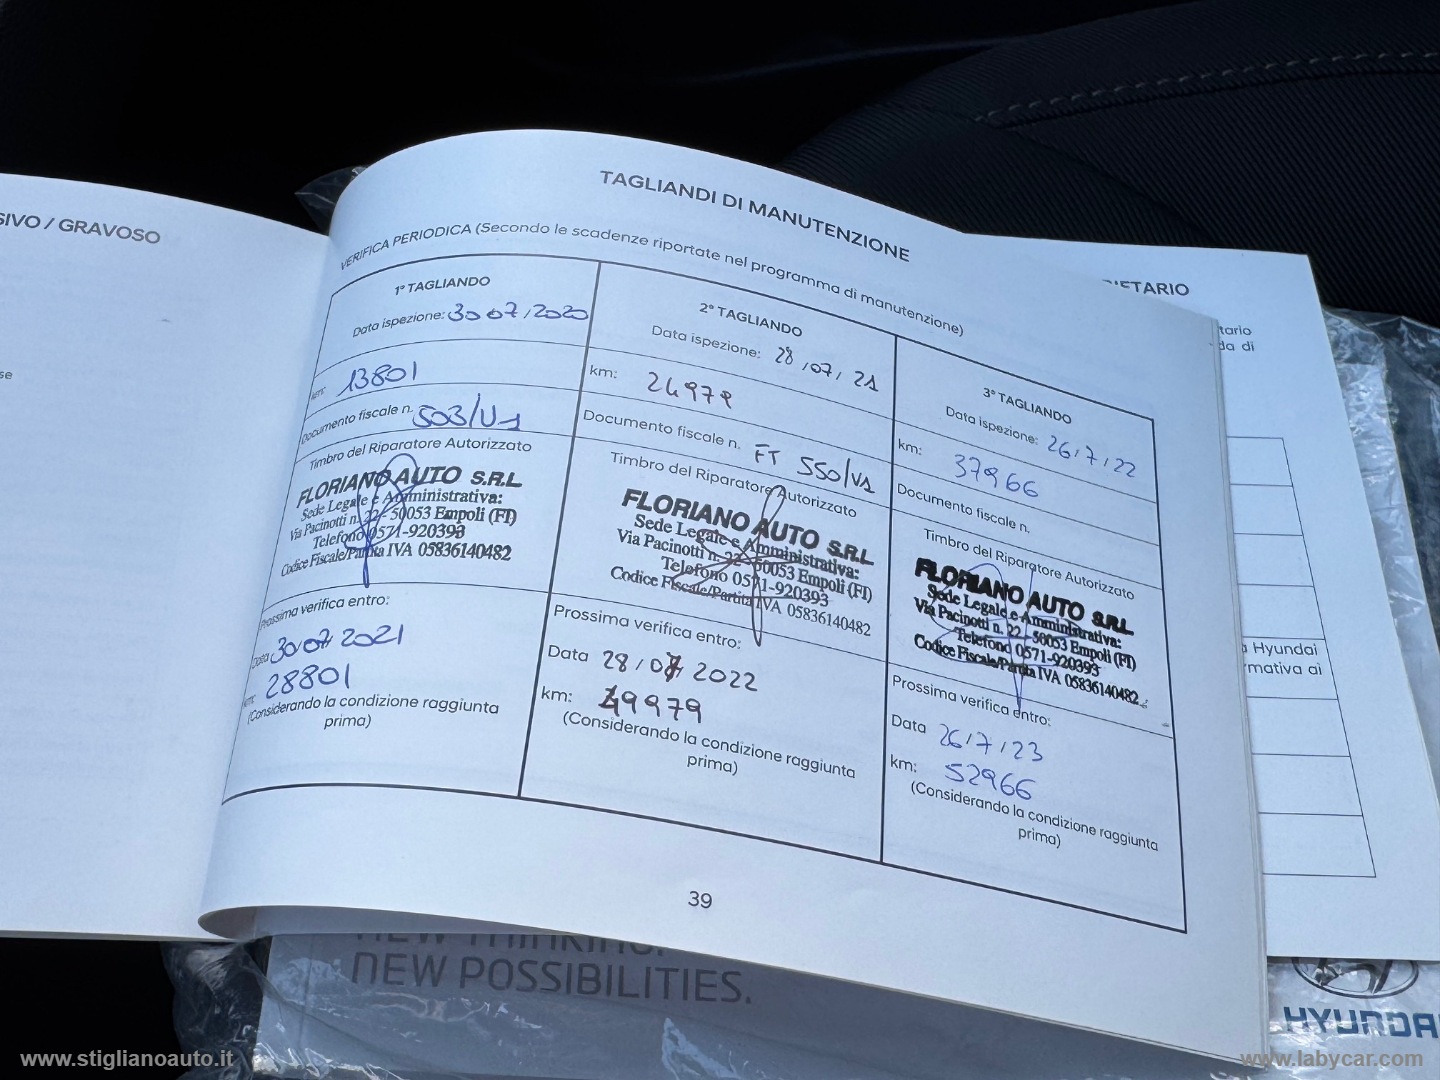 SIVO / GRAVOSO
se
TAGLIANDI DI MANUTENZIONE
VERIFICA PERIODICA (Secondo le scadenze riportate nel programma di manutenzione)
1° TAGLIANDO
Data ispezione: 30 07/2020
km: 13801
Documento fiscale n. 503/V1
Timbro del Riparatore Autorizzato
FLORIANO AUTO S.R.L
Sede Legale e Amministrativa:
Via Pacinotti n. 22 - 50053 Empoli (FI)
Telefono 0571-920393
Codice Fiscale/Partita IVA 05836140482
Prossima verifica entro:
Data 30/07/2021
km: 28801
(Considerando la condizione raggiunta
prima)
2° TAGLIANDO
Data ispezione: 28/07/21
km: 24979
Documento fiscale n. FT 550/V1
Timbro del Riparatore Autorizzato
FLORIANO AUTO S.R.L
Sede Legale e Amministrativa:
Via Pacinotti n. 22 - 50053 Empoli (FI)
Telefono 0571-920393
Codice Fiscale/Partita IVA 05836140482
Prossima verifica entro:
Data 28/07/2022
km: 49979
(Considerando la condizione raggiunta
prima)
3° TAGLIANDO
Data ispezione: 26/7/22
km: 37966
Documento fiscale n.
Timbro del Riparatore Autorizzato
FLORIANO AUTO S.R.L
Sede Legale e Amministrativa:
Via Pacinotti n. 22 - 50053 Empoli (FI)
Telefono 0571-920393
Codice Fiscale/Partita IVA 05836140482
Prossima verifica entro:
Data 26/7/23
km: 52966
(Considerando la condizione raggiunta
prima)
39
RIETARIO
tario
da di
Hyundai
rmativa ai
NEW THINKING.
NEW POSSIBILITIES.
HYUNDAI
www.stiglianoauto.it
www.labycar.com